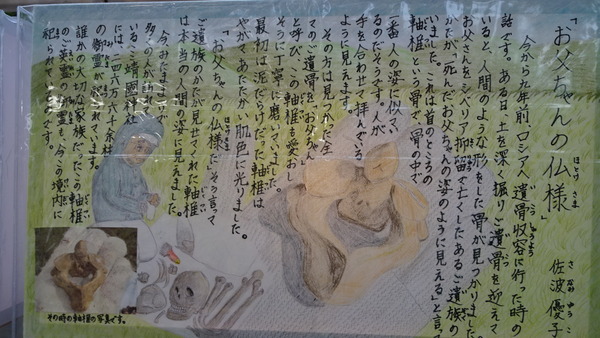 「お父ちゃんの仏様」
ほとけ さま
佐波優子
さ なみ ゆう こ
今から九年前、ロシアへ遺骨収容に行った時の
話です。ある日、土を深く掘り、ご遺骨を迎えて
いると、人間のような形をした骨が見つかりました。
お父さんをシベリア抑留で亡くしたあるご遺族の
かたが「死んだお父ちゃんの姿のように見える」と言って
いました。これは首のところの
軸椎という骨で、骨の中で
一番人の姿に似てい
るのだそうです。人が
手を合わせて拝んでいる
ように見えます。
その方は見つかった全
てのご遺骨を「お父ちゃん」
と呼び、この軸椎も愛おし
そうに丁寧に磨いていました。
最初は泥だらけだった軸椎は
やがてあたたかい肌色に光りました。
「お父ちゃんの仏様だ」そう言って
ほとけさま
ご遺族のかたが見せてくれた軸椎
は本当の人間の姿に見えました。
今みたままつりで
多くの人が訪れて
いるこの靖國神社
には、二四六万六千余柱
の御霊が祀られています。
誰かの大切な家族だったこの軸椎
のご英霊の御霊も、今この境内に
祀られているのです。
その時の軸椎の写真です。